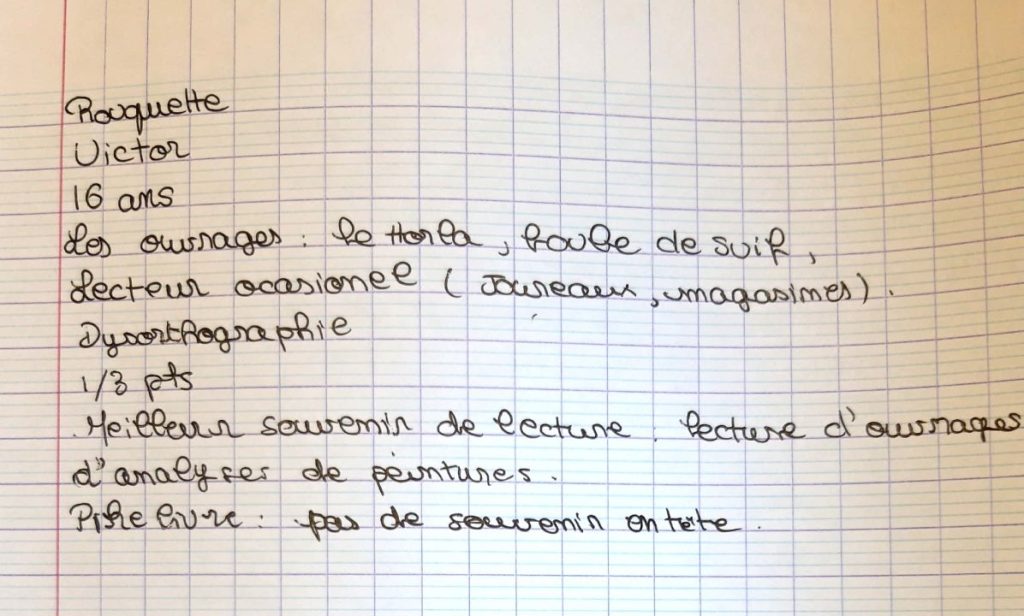 Rouquette
Victor
16 ans
Les ouvrages : le Horla, boule de suif,
Lecteur ocasionel ( Joureaux, magasimes).
Dysorthographie
1/3 pts
Meilleur souvenir de lecture : lecture d'ouvrages
d'analyses de peintures.
Pire livre : pas de souvenir en tête.